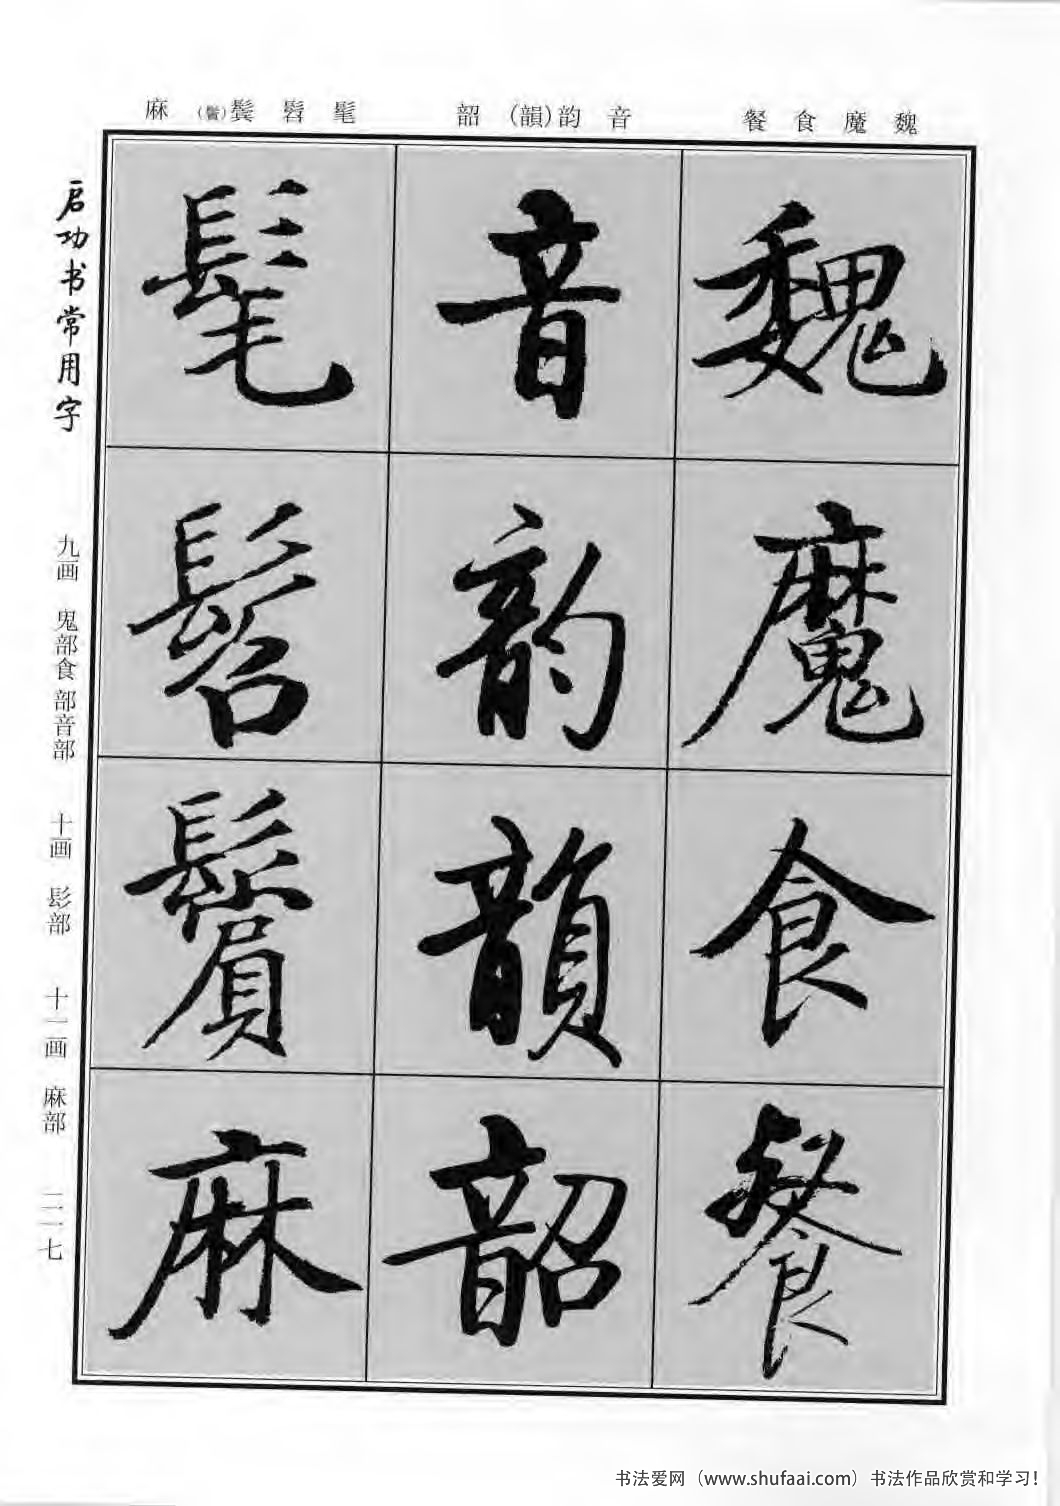 魏魔食餐
音韵(韻)韶
髦髫鬓(鬢)麻
魏
魔
食
餐
音
韵
韻
韶
髦
髫
鬢
麻
启功书常用字
九画 鬼部食部音部 十画 髟部 十一画 麻部 二一七
书法爱网（www.shufaai.com）书法作品欣赏和学习！